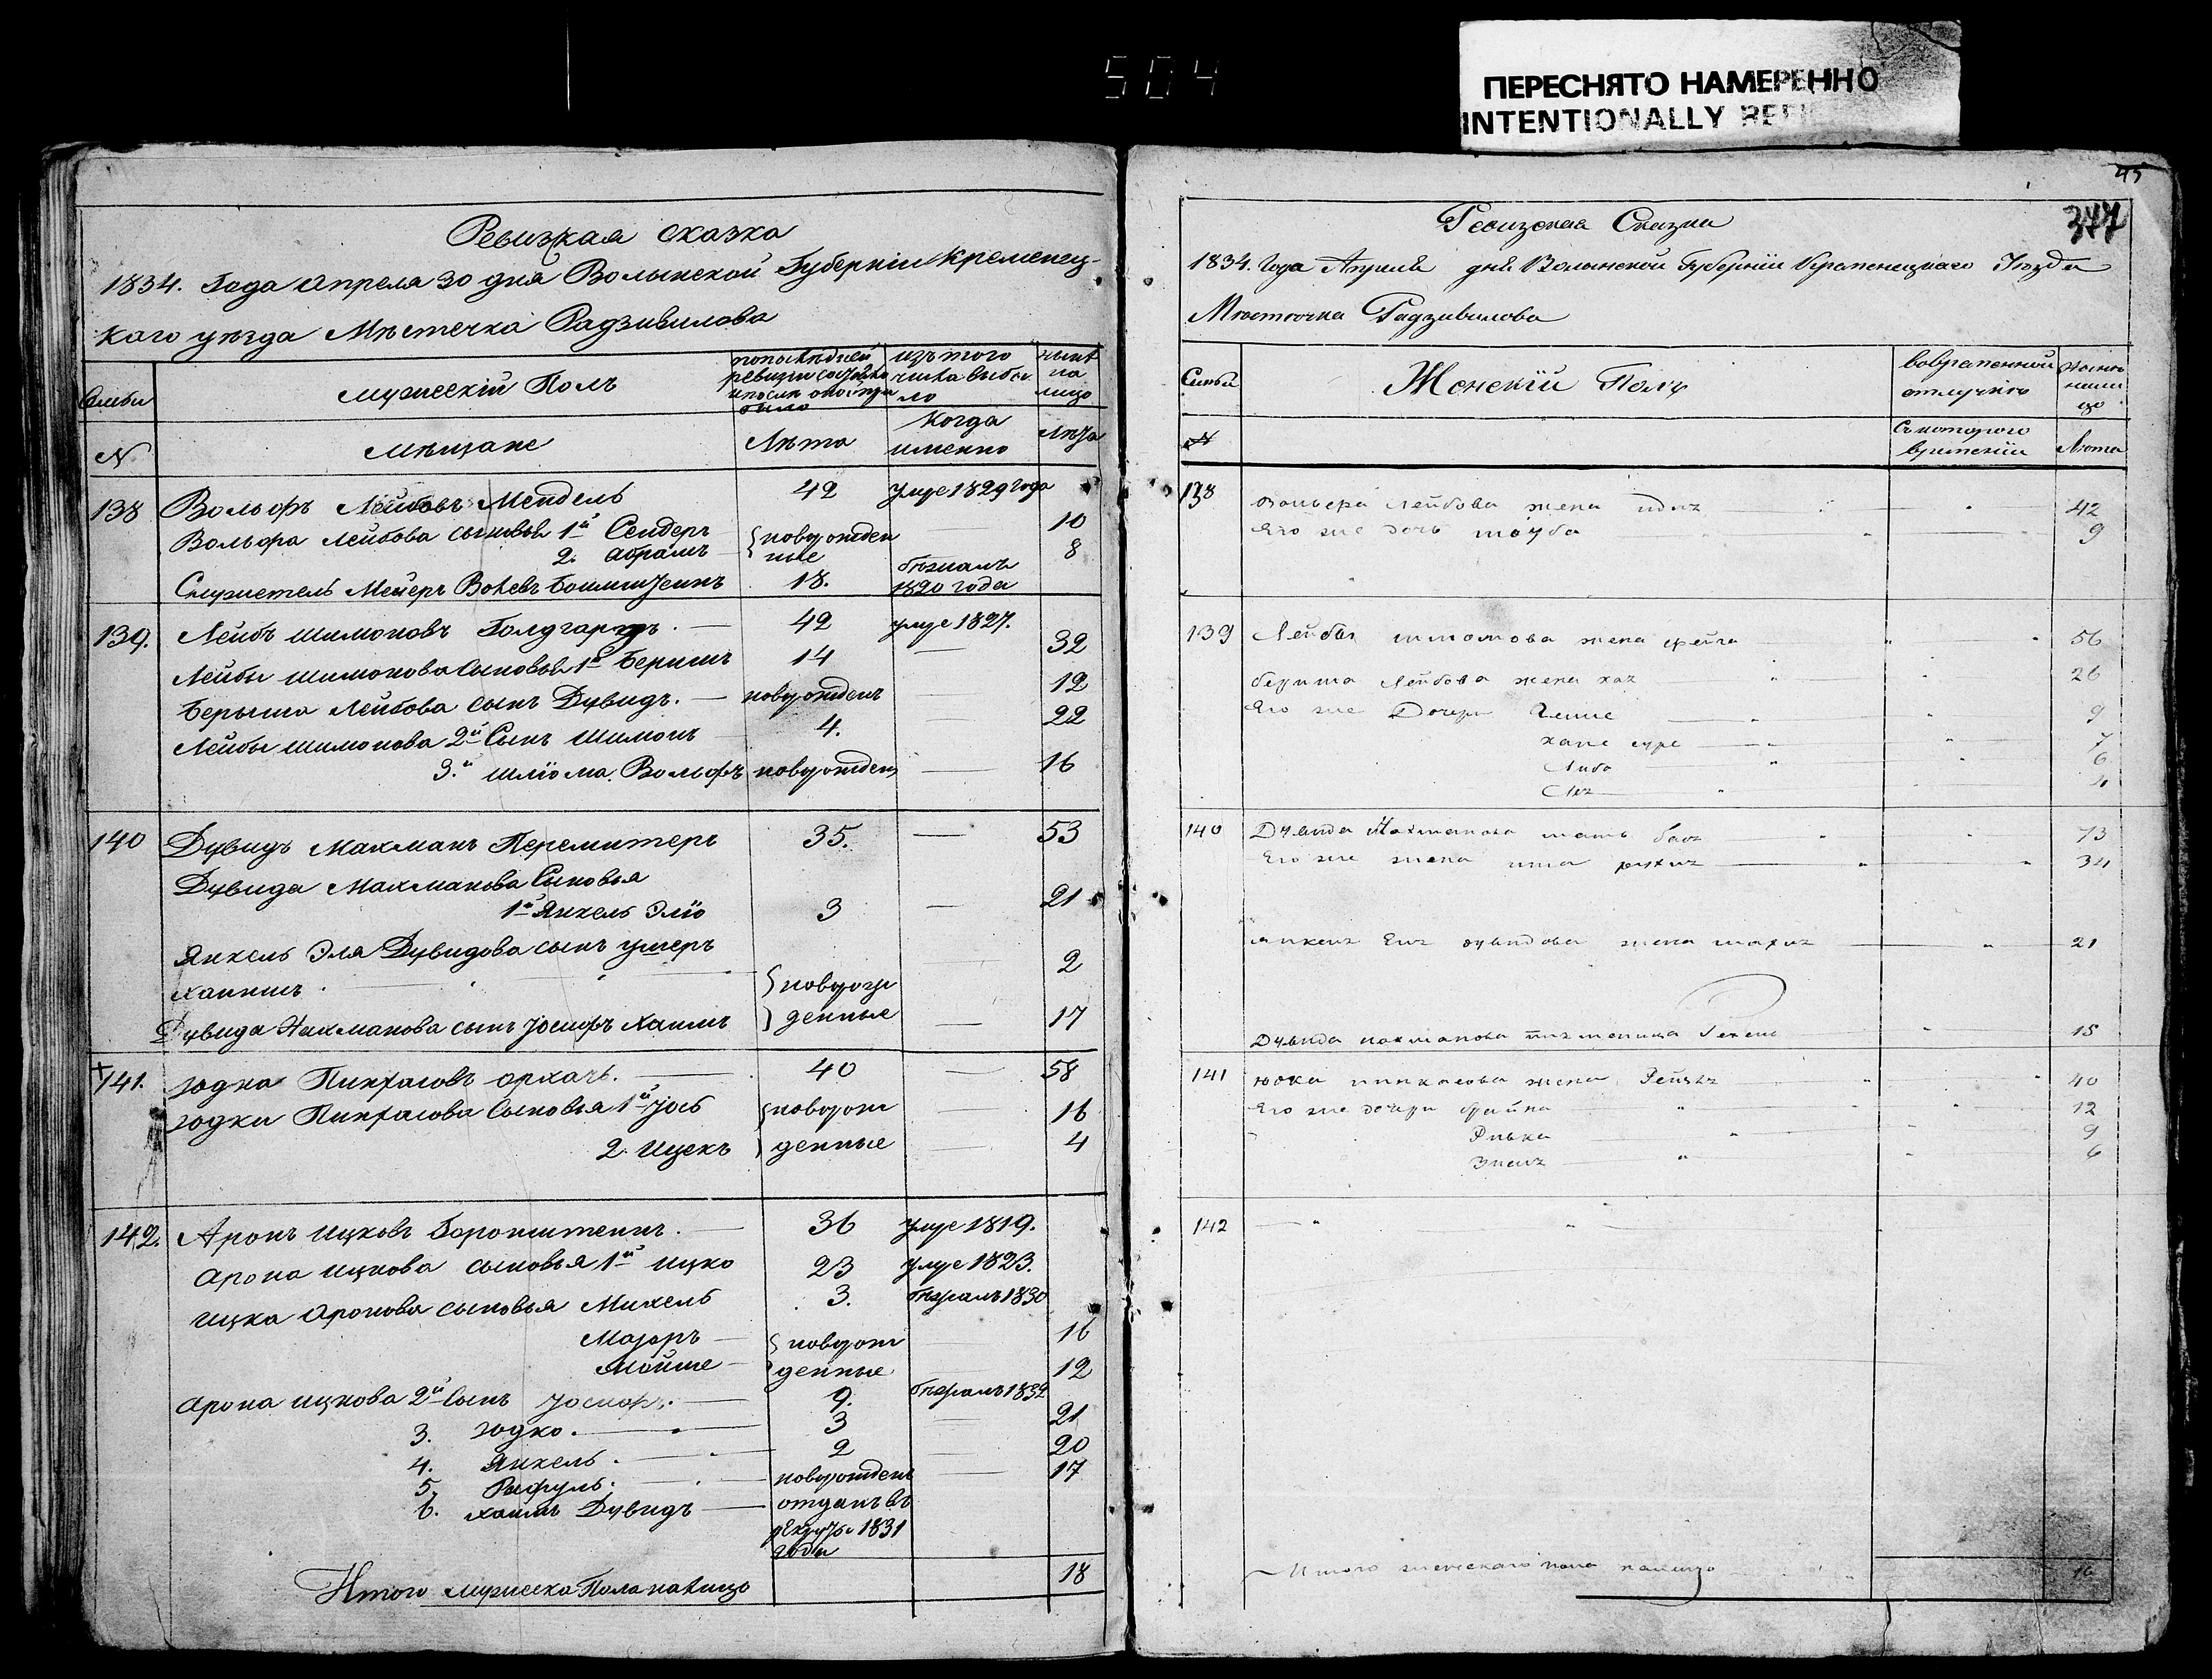 504
ПЕРЕСНЯТО НАМЕРЕННО
INTENTIONALLY
45
377
Ревизкая сказка
1834. Года Апреля 30 дня Волынской Губернии Кременец-
каго уезда Мѣстечка Радзивилова
Семьи
мужескій Полъ
попослѣдней ревизіи состояло
изъ того числа выбыло
нынѣ на лицо
N
мѣщане
Лѣта
Когда именно
Лѣта
138 Вольфъ Лейбовъ Мендель 42 умре 1829 года
Вольфа Лейбова сыновья 1й Сендеръ новорожден 10
2. Абрамъ ные 8
Служитель Мейеръ 18. бѣжалъ 1820 года
139. Лейбъ Шимоновъ 42 умре 1827.
Лейбы Шимонова Сыновья 1й Беришъ 14 — 32
Берыша Лейбова сынъ Дувидъ. — новорожденъ 12
Лейбы Шимонова 2й Сынъ Шимонъ 4. 22
3.й Шліома Вольфъ новорожден — 16
140 Дувидъ Махманъ Перемитеръ 35. — 53
Дувида Махманова Сыновья
1й Янкель Эліо 3 — 21
Янкель Эля Дувидова сынъ
Хаимъ новорож 2
Дувида Нахманова сынъ Іосифъ Хаимъ денные — 17
141. Юдка Пинхасовъ 40 — 58
Юдки Пинхасова Сыновья 1й Іосъ новорож — 16
2. Ицекъ денные — 4
142. Аронъ Ицковъ 36 умре 1819.
Арона Ицкова сыновья 1й Ицко 23 умре 1823.
Ицка Аронова сыновья Михель 3. бѣжалъ 1830
Маіоръ новорож 16
Мойше денные 12
Арона Ицкова 2й Сынъ Іосифъ. — 9. бѣжалъ 1832
3. Юдко. 3 21
4. Янкель. 2 20
5. Рафуль. новорожденъ 17
6. Хаимъ Дувидъ отданъ въ рекруты 1831 года
Итого мужеска Пола налицо 18
Ревизская Сказка
1834. Года Апреля дня Волынской Губерніи Кременецкаго Уѣзда
Мѣстечка Радзивилова
Семьи
Женскій Полъ
вовременной отлучкѣ
N
Съ котораго времени
Лѣта
138 Вольфа Лейбова жена 42
Его же дочь Тауба 9
139 Лейбы Шимонова жена Фейга 56
Бериша Лейбова жена Хая 26
Его же Дочери 9
Хане Суре 7
Либа 6
Лея 4
140 Дувида Нахманова мать Бася 73
Его же жена 34
Янкеля Еля Дувидова жена 21
Дувида Нахманова племеница 15
141 Юдка Пинхасова жена Рейзя 40
Его же дочери Фрайна 12
Рывка 9
6
142
Итого женскаго пола налицо 16